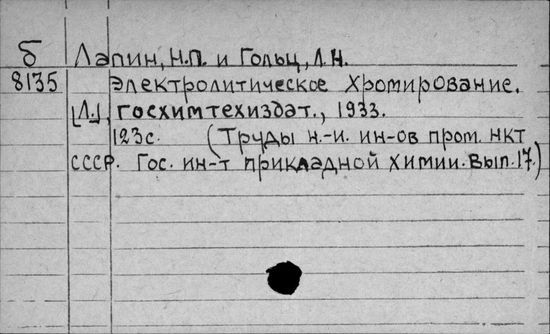 б Лапин, Н.П. и Гольц, Л.Н.
8135 Электролитическое хромирование.
[Л.], Госхимтехиздат., 1933.
123с. (Труды н.-и. ин-ов пром. НКТ
СССР. Гос. ин-т прикладной химии. Вып. 17.)